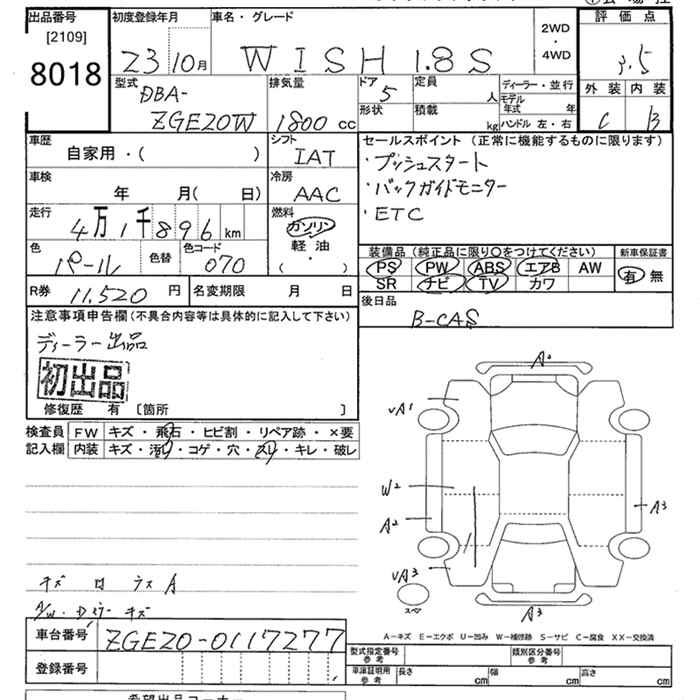 出品番号 初度登録年月 車名・グレード 評価点
[2109]
8018
23 10月 WISH 1.8S 2WD・4WD 3.5
型式 排気量 ドア 定員 ディーラー・並行 外装 内装
DBA- 5 人 モデル年式 年 C B
ZGE20W 1800cc 形状 積載 kg ハンドル 左・右
車歴 シフト セールスポイント (正常に機能するものに限ります)
自家用・( ) IAT ・プッシュスタート
車検 冷房 ・バックガイドモニター
年 月( 日) AAC ・ETC
走行 燃料
4万1千896km ガソリン
軽油
( )
色 色替 色コード 装備品 (純正品に限り○をつけてください) 新車保証書
パール 070 PS PW ABS エアB AW 有 無
SR ナビ TV カワ
R券 11,520円 名変期限 月 日 後日品
B-CAS
注意事項申告欄(不具合内容等は具体的に記入して下さい)
ディーラー出品
初出品
修復歴 有 [箇所 ]
検査員 FW キズ・飛石・ヒビ割・リペア跡・×要
記入欄 内装 キズ・汚れ・コゲ・穴・スレ・キレ・破レ
A2
UA1
W2
A2
A3
UA3
スペア
A3
キズ
A/W キズ
A-キズ E-エクボ U-凹み W-補修跡 S-サビ C-腐食 XX-交換済
車台番号 ZGE20-0117277
型式指定番号 参考 類別区分番号 参考
登録番号 車庫証明用 参考 長さ cm 幅 cm 高さ cm
希望出品コーナー